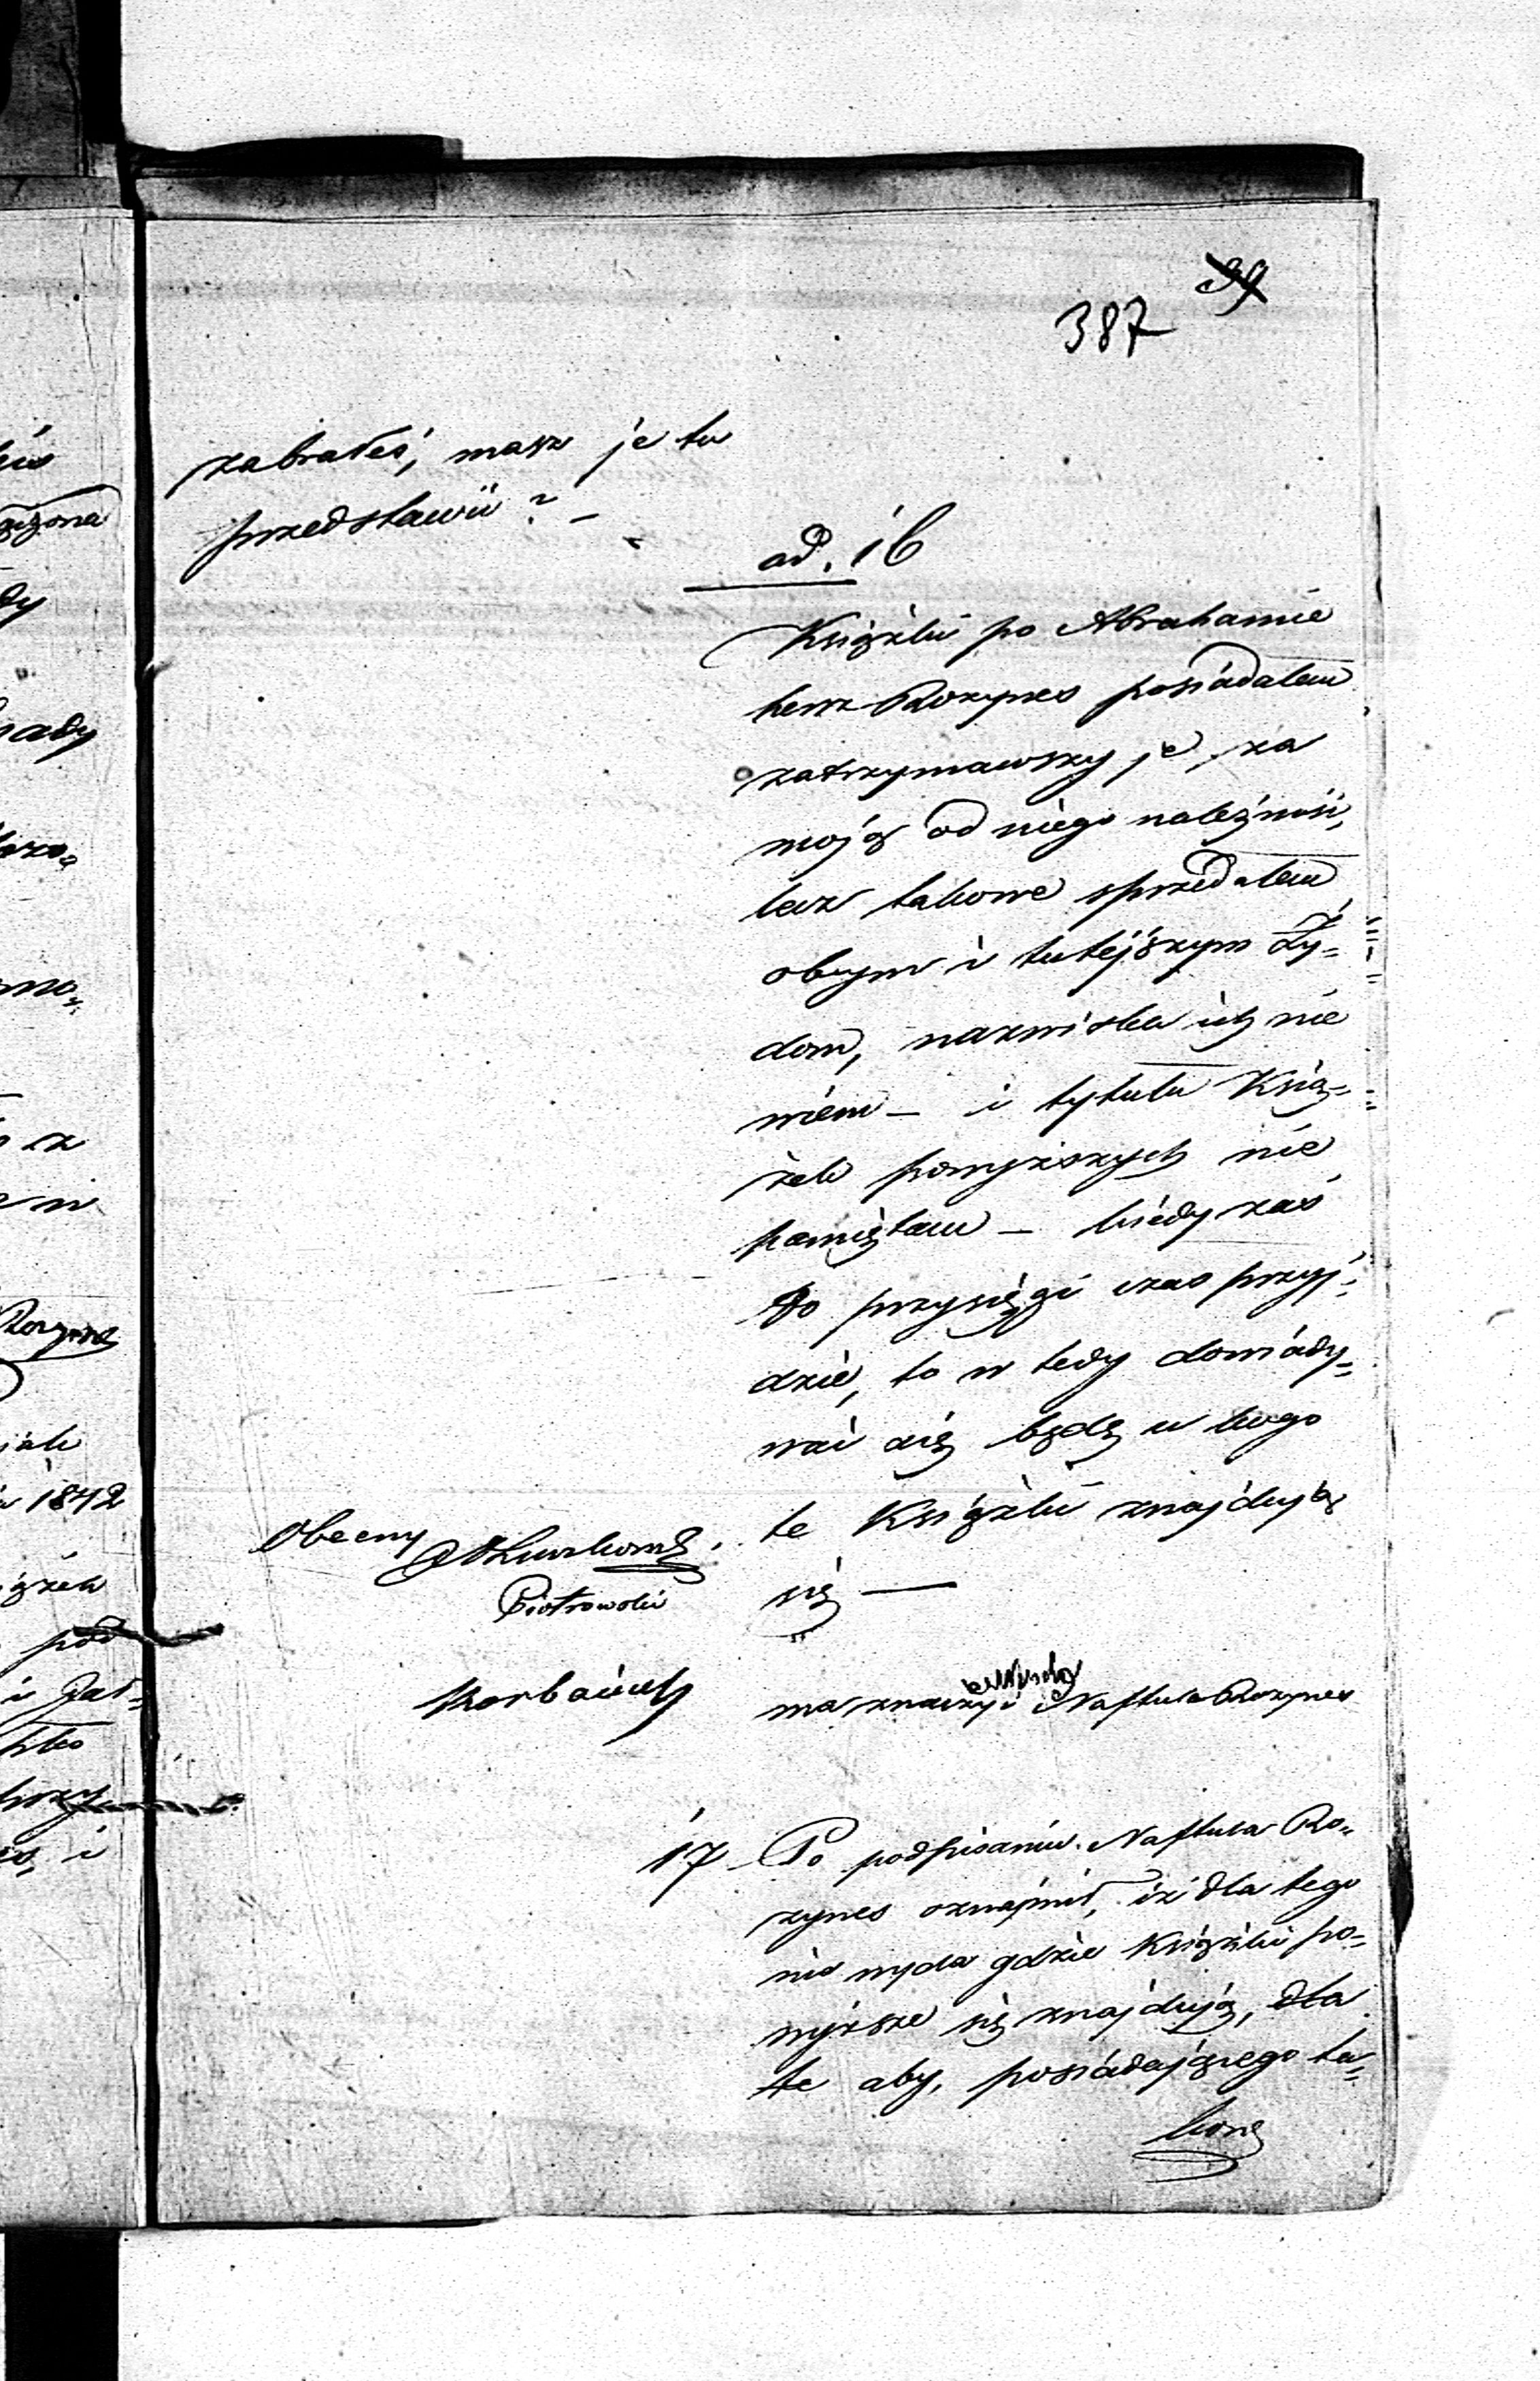 39
387
zabrałeś, masz je tu
przedstawić? –
ad. 16
Książki po Abrahamie
hersz Rozynes posiadałem
zatrzymawszy je za
moją od niego należność,
lecz takowe sprzedałem
obcym i tutejszym Ży-
dom, nazwiska ich nie
wiem – i tytułu Ksią-
żek powyższych nie
pamiętam – kiedy zaś
do przysięgi czas przyj-
dzie, to w tedy dowiady-
wać się będę u kogo
te Książki znajdują
się —
Obecny
Piotrowski
ma znaczyć Naftula Rozynes
17 – Po podpisaniu Naftula Ro-
zynes oznajmił, iż dla tego
nie wyda gdzie Książki po-
wyższe się znajdują, dla
te aby, posiadającego ta-
kowe
ki
1842
pod
i
z